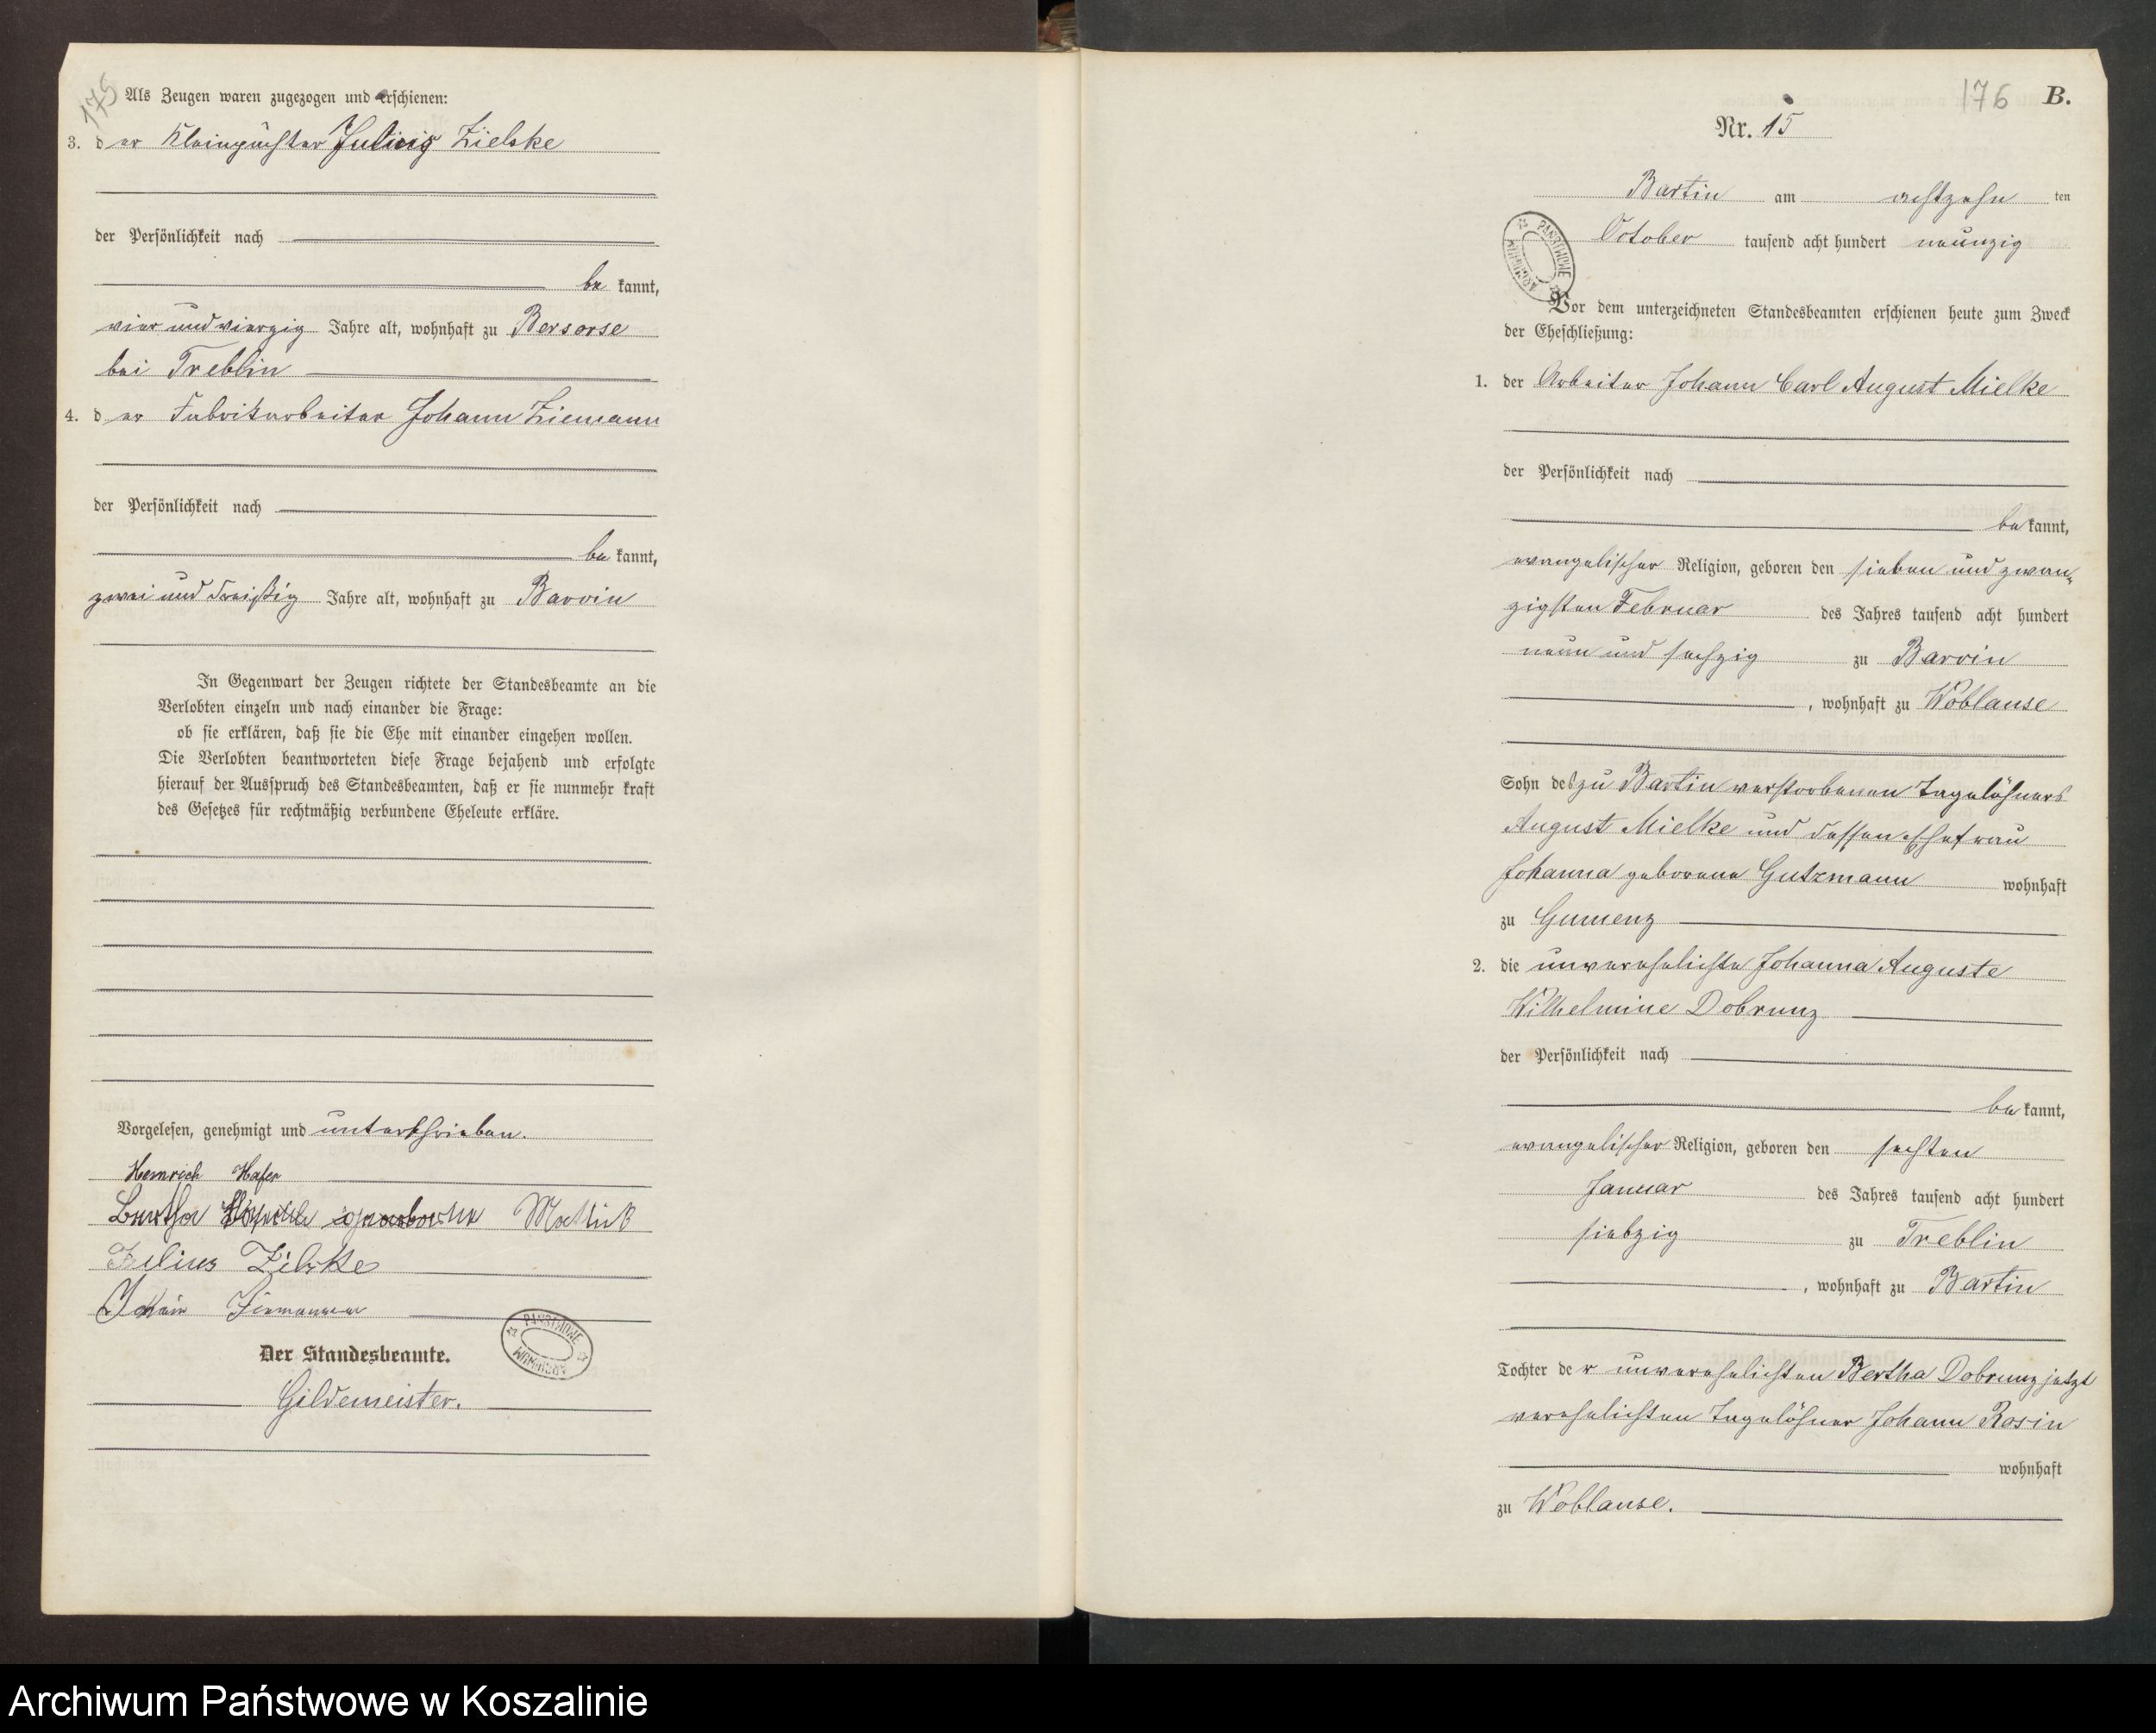 175
Als Zeugen waren zugezogen und erschienen:
3. der Kleinpächter Julius Zielske
der Persönlichkeit nach
bekannt,
vier und vierzig Jahre alt, wohnhaft zu Versorse
bei Treblin
4. der Fabrikarbeiter Johann Ziemann
der Persönlichkeit nach
bekannt,
zwei und dreißig Jahre alt, wohnhaft zu Barvin
In Gegenwart der Zeugen richtete der Standesbeamte an die
Verlobten einzeln und nach einander die Frage:
ob sie erklären, daß sie die Ehe mit einander eingehen wollen.
Die Verlobten beantworteten diese Frage bejahend und erfolgte
hierauf der Ausspruch des Standesbeamten, daß er sie nunmehr kraft
des Gesetzes für rechtmäßig verbundene Eheleute erkläre.
Vorgelesen, genehmigt und unterschrieben.
Heinrich Hafer
Bertha geborene
Julius Zilske
Johann Ziemann
Der Standesbeamte.
Gildemeister.
176 B.
Nr. 15
Bartin am achtzehn ten
October tausend acht hundert neunzig
Vor dem unterzeichneten Standesbeamten erschienen heute zum Zweck
der Eheschließung:
1. der Arbeiter Johann Carl August Mielke
der Persönlichkeit nach
bekannt,
evangelischer Religion, geboren den sieben und zwan-
zigsten Februar des Jahres tausend acht hundert
neun und sechzig zu Barvin
, wohnhaft zu Woblanse
Sohn des zu Bartin verstorbenen Tagelöhners
August Mielke und dessen Ehefrau
Johanna geborene Gutzmann wohnhaft
zu Gumenz
2. die unverehelichte Johanna Auguste
Wilhelmine Dobrunz
der Persönlichkeit nach
bekannt,
evangelischer Religion, geboren den sechsten
Januar des Jahres tausend acht hundert
siebzig zu Treblin
, wohnhaft zu Bartin
Tochter der unverehelichten Bertha Dobrunz jetzt
verehelichten Tagelöhner Johann Rosin
wohnhaft
zu Woblanse.
Archiwum Państwowe w Koszalinie